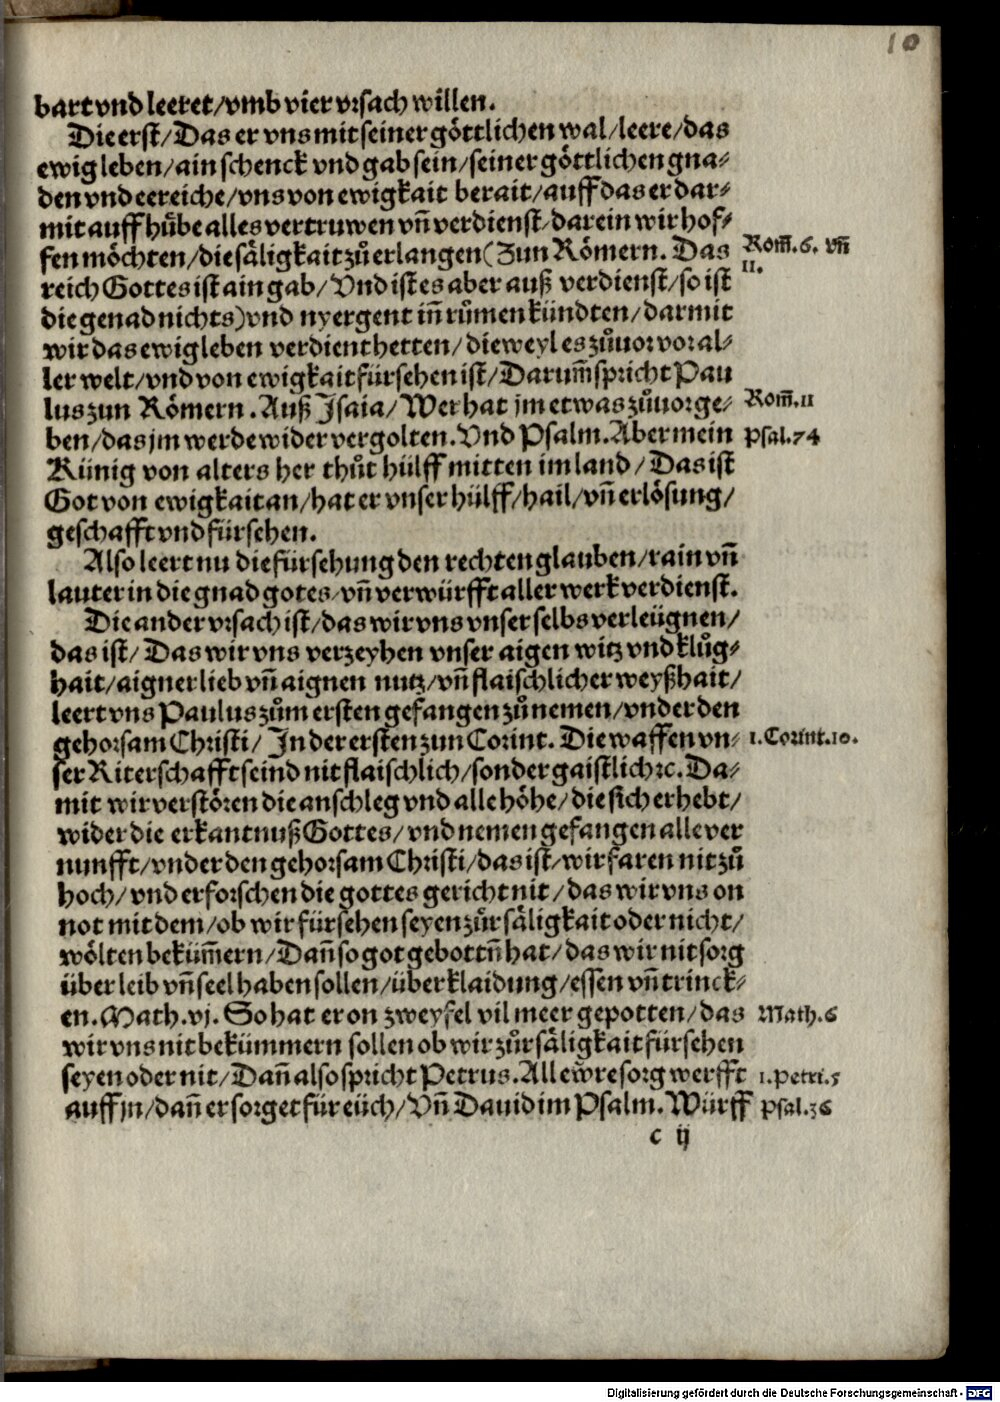 10
bart vnd leeret/vmb vier vrsach willen.
Die erst/Das er vns mit seiner göttlichen wal/leere/das
ewig leben/ain schenck vnd gab sein/seiner göttlichen gna-
den vnd eereiche/vns von ewigkait berait/auff das er dar-
mit auff hübe alles vertruwen vn̄ verdienst/darein wir hof-
fen möchten/die säligkait zůerlangen(Zun Römern. Das
Rom̄.6. vn̄
11.
reich Gottes ist ain gab/Vnd ist es aber auß verdienst/so ist
die genad nichts)vnd nyergent in̄ růmen kündten/darmit
wir das ewig leben verdient hetten/dieweyl es zůuor vor al-
ler welt/vnd von ewigkait fürsehen ist/Darum̄ spricht Pau
lus zun Römern. Auß Jsaia/Wer hat jm etwas zůuor ge-
Rom̄.11
ben/das jm werde wider vergolten. Vnd Psalm. Aber mein
Psal.74
Künig von alters her thůt hülff mitten im land/Das ist
Got von ewigkait an/hat er vnser hülff/hail/vn̄ erlösung/
geschafft vnd fürsehen.
Also leert nu die fürsehung den rechten glauben/rain vn̄
lauter in die gnad gotes/vn̄ verwürfft aller werk verdienst.
Die ander vrsach ist/das wir vns vnser selbs verleügnen/
das ist/Das wir vns verzeyhen vnser aigen witz vnd klůg-
hait/aigner lieb vn̄ aignen nutz/vn̄ flaischlicher weyßhait/
leert vns Paulus zům ersten gefangen zůnemen/vnder den
gehorsam Christi/Jn der ersten zun Corint. Die waffen vn-
1.Corint.10.
ser Riterschafft seind nit flaischlich/sonder gaistlich ꝛc. Da-
mit wir verstören die anschleg vnd alle höhe/die sich erhebt/
wider die erkantnuß Gottes/vnd nemen gefangen alle ver
nunfft/vnder den gehorsam Christi/das ist/wir faren nit zů
hoch/vnd erforschen die gottes gericht nit/das wir vns on
not mit dem/ob wir fürsehen seyen zůr säligkait oder nicht/
wölten bekům̄ern/Dan̄ so got gebottn̄ hat/das wir nit sorg
über leib vn̄ seel haben sollen/über klaidung/essen vn̄ trinck-
en. Math.vj. So hat er on zweyfel vil meer gepotten/das
Math.6
wir vns nit bekümmern sollen ob wir zůr säligkait fürsehen
seyen oder nit/Dan̄ also spricht Petrus. All ewre sorg werfft
1.Petri.5
auff jn/dan̄ er sorget für eüch/Vn̄ Dauid im Psalm. Würff
Psal.36
c ij
Digitalisierung gefördert durch die Deutsche Forschungsgemeinschaft - DFG